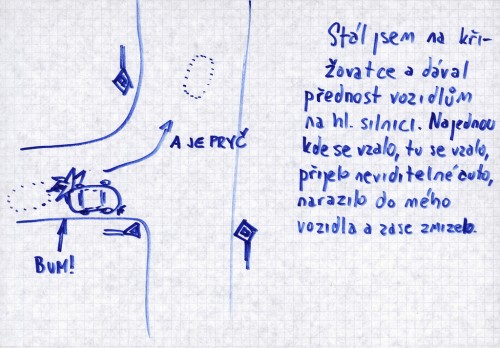 A JE PRYČ
BUM!
Stál jsem na kři-
žovatce a dával
přednost vozidlům
na hl. silnici. Najednou
kde se vzalo, tu se vzalo,
přijelo neviditelné auto,
narazilo do mého
vozidla a zase zmizelo.